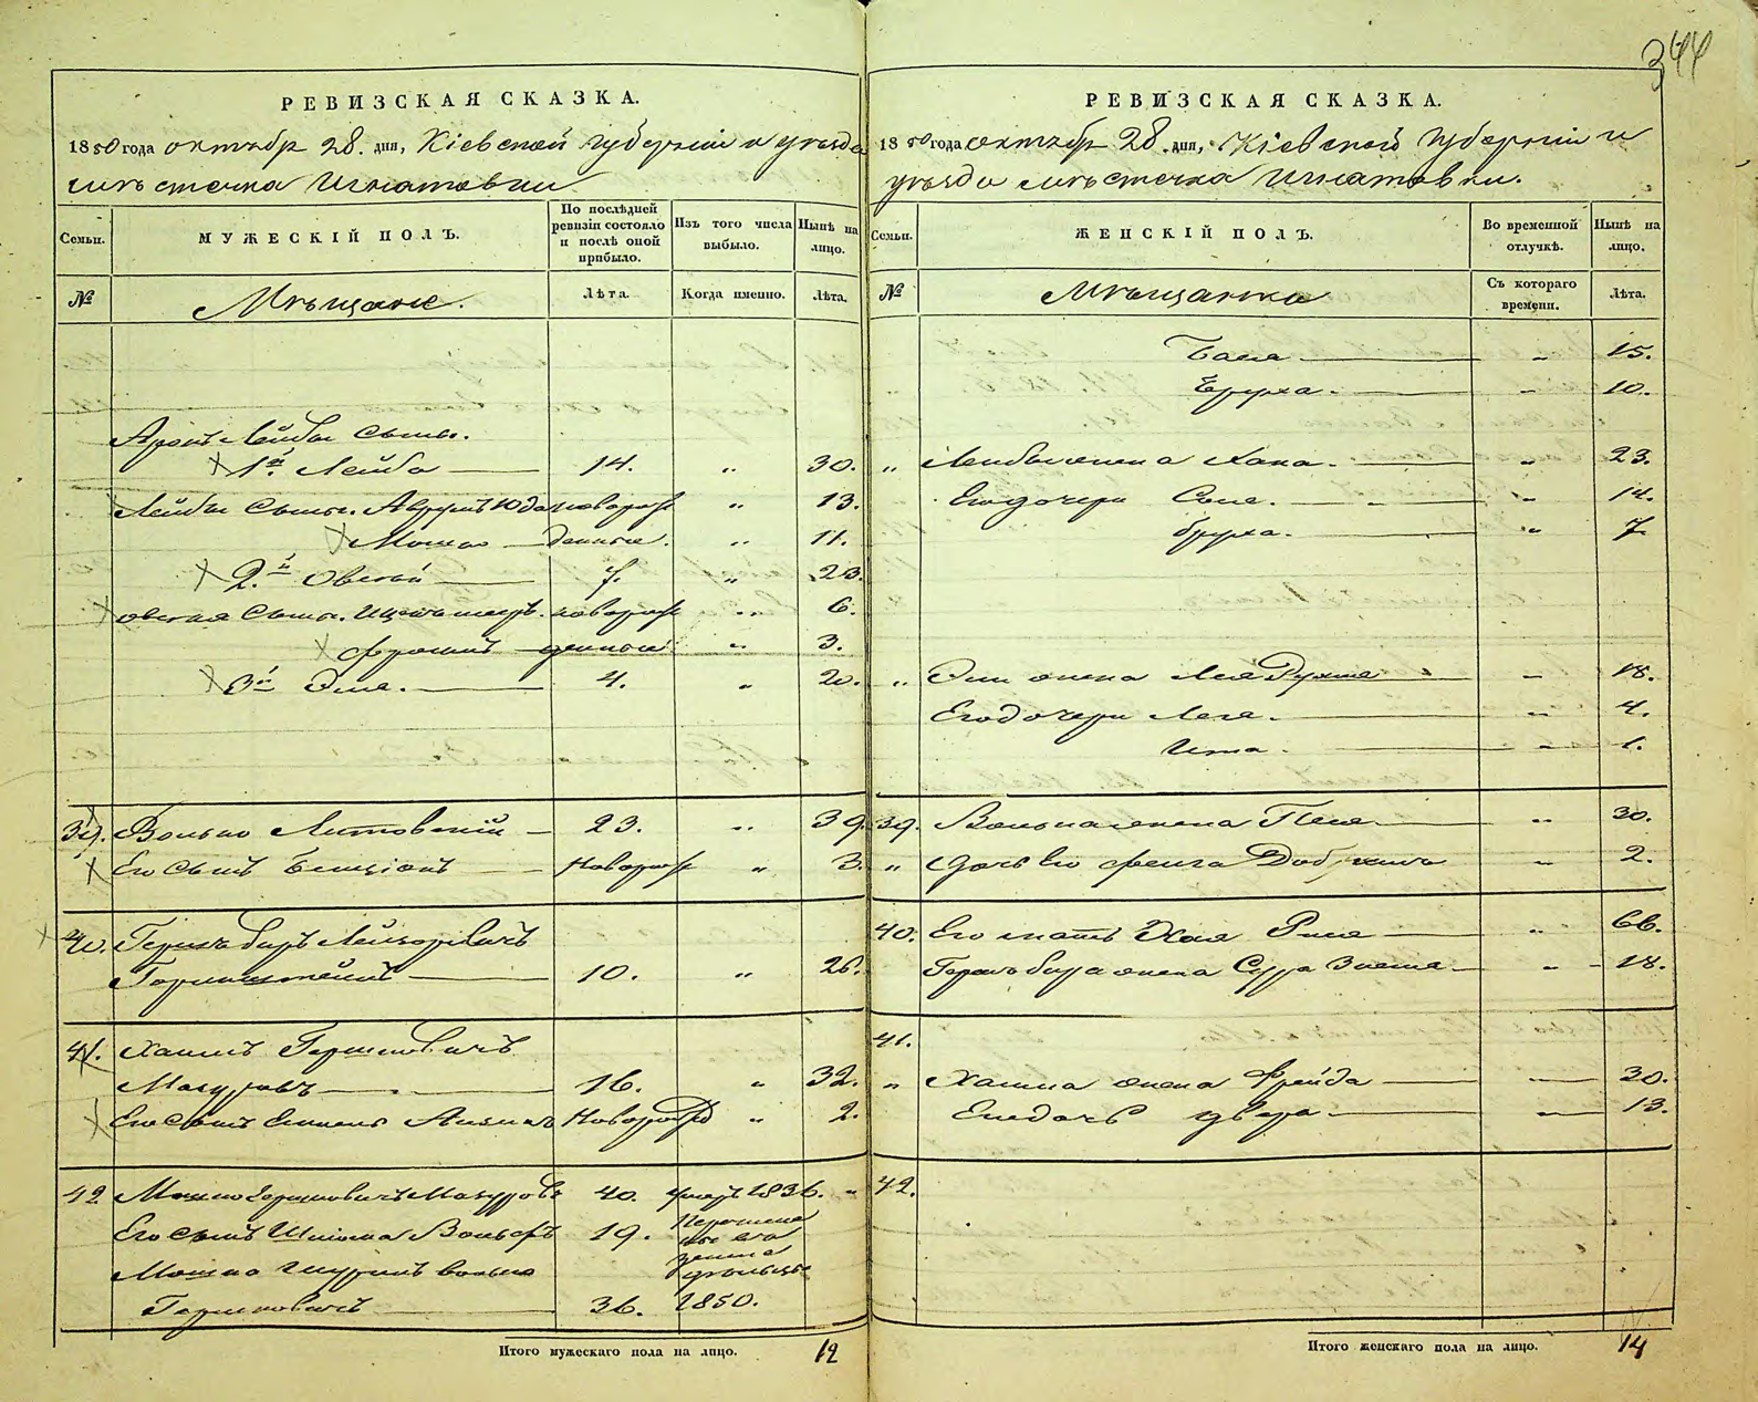 344
РЕВИЗСКАЯ СКАЗКА.
1850 года октября 28. дня, Кіевской Губерніи и уѣзда
мѣстечка Игнатовки
Семьи.
МУЖЕСКІЙ ПОЛЪ.
По послѣдней ревизіи состояло и послѣ оной прибыло.
Изъ того числа выбыло.
Нынѣ на лицо.
№
Мѣщане.
Лѣта.
Когда именно.
Лѣта.
Аронъ Лейбы Сыны.
1й Лейба 14. „ 30.
Лейбы Сыны. Аврумъ Юда новорож „ 13.
Мошко денные. „ 11.
2.й Овсей 7. „ 23.
Овсея Сыны. Ицко новорож „ 6.
Фроимъ денные „ 3.
3й Эля. 4. „ 20.
39. Волько Литовскій 23. „ 39.
Его Сынъ Бенціонъ Новорож „ 3.
40. Гершъ Беръ Лейзоровичъ
Горинштейнъ 10. „ 26.
41. Хаимъ Гершковичъ
Мазуровъ 16. „ 32.
Его Сынъ Новорожд „ 2.
42 Мошко Гершковичъ Мазуровъ 40. умеръ 1836. „
Его сынъ Шлiома Вольфъ 19.
Мошко Шуримъ Волько
Гершковичъ 36. 1850.
Итого мужескаго пола на лицо. 12
РЕВИЗСКАЯ СКАЗКА.
1850 года октября 28. дня, Кіевской Губерніи и
уѣзда мѣстечка Игнатовки.
Семьи.
ЖЕНСКІЙ ПОЛЪ.
Во временной отлучкѣ.
Нынѣ на лицо.
№
Мѣщанки
Съ котораго времени.
Лѣта.
Бася „ 15.
Бруха. „ 10.
„ Лейбы жена Хана. „ 23.
Его дочери Сося. „ 14.
Бруха. „ 7.
„ Эли жена Лея Рухля „ 18.
Его дочери Лея. „ 4.
Ита. „ 1.
39. Волька жена Песя „ 30.
„ Дочь Его Фейга Добрышъ „ 2.
40. Его мать Хая Рися „ 66.
Гершъ Бера жена Сура Знеша „ 18.
41.
„ Хаима жена Фрейда 30.
Его дочь Двера „ 13.
42.
Итого женскаго пола на лицо. 14